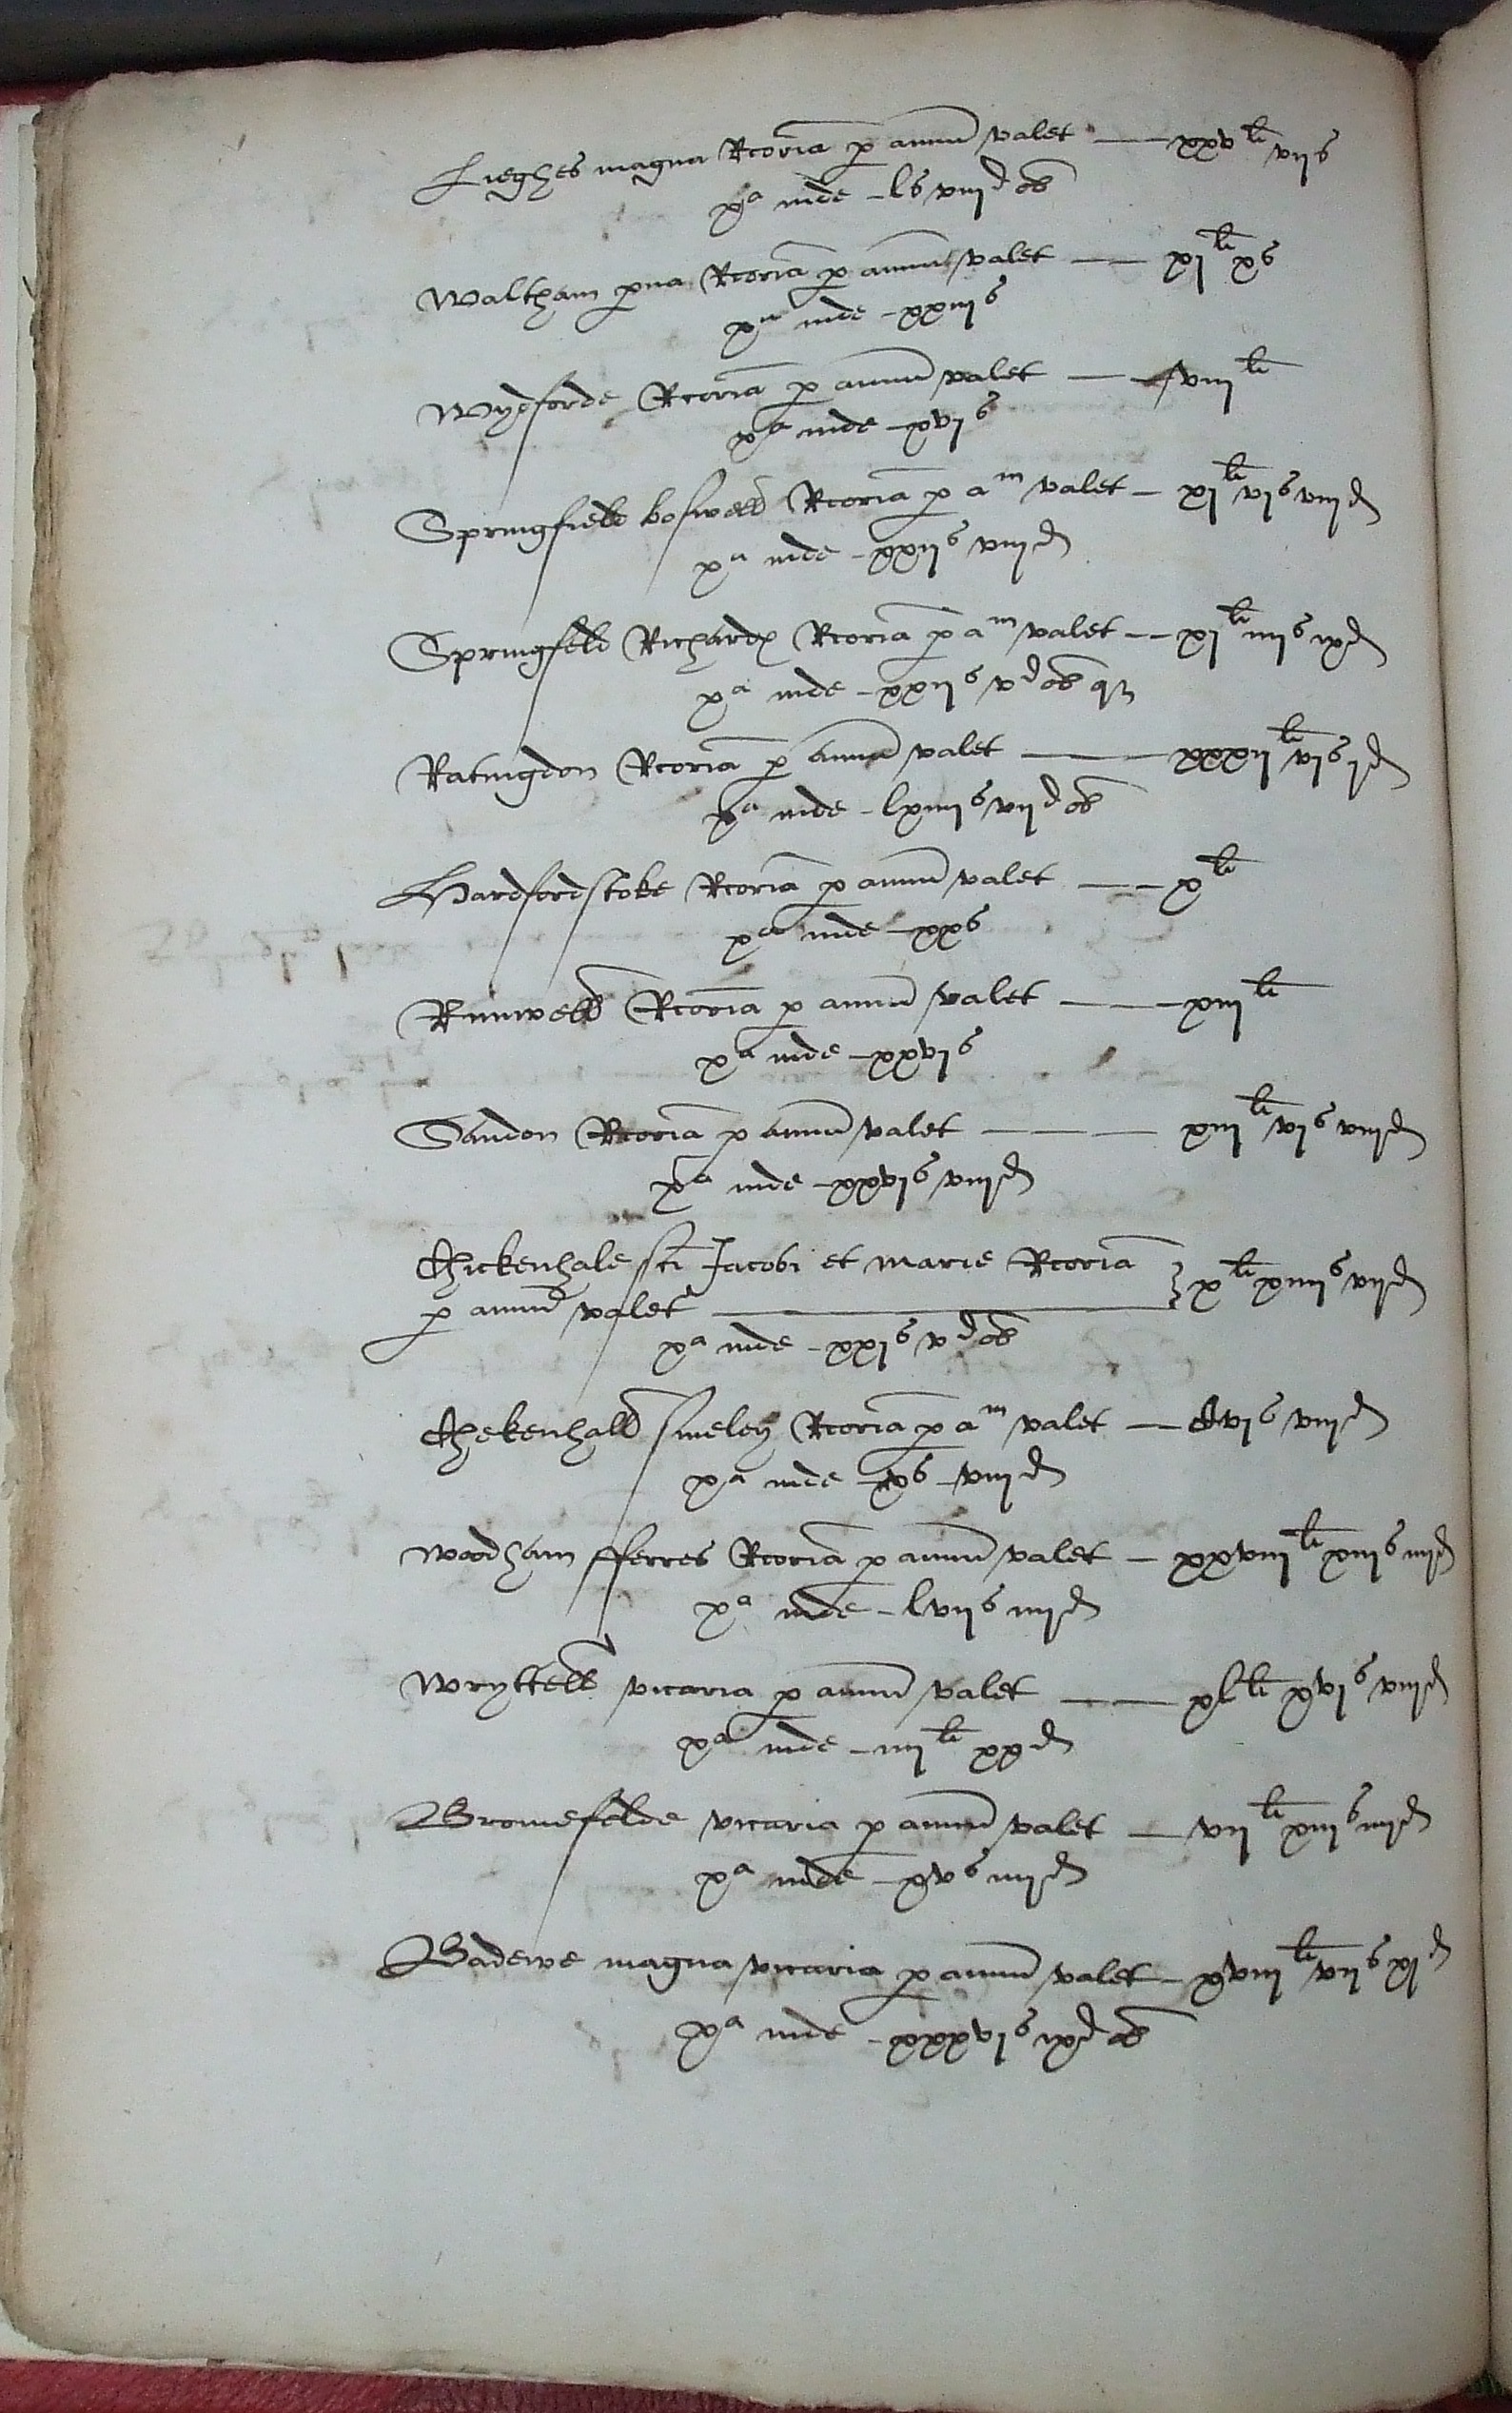 Lieghes magna Rcoria p annu valet — xxv li vij s
xa inde - l s viij d ob
Waltham pua Rcoria p annu valet — xj li x s
xa inde - xxiij s
Wydforde Rcoria p annu valet — viij li
xa inde - xvj s
Springfield boswell Rcoria p a m valet - xj li vj s viij d
xa inde - xxij s viij d
Springfeld Richardz Rcoria p a m valet - xj li iiij s ix d
xa inde - xxij s v d ob qz
Ratingdon Rcoria p annu valet — xxxij li vj s j d
xa inde - lxiiij s vij d ob
Hardfordstoke Rcoria p annu valet — x li
xa inde - xx s
Runwell Rcoria p annu valet — xiij li
xa inde - xxvj s
Sandon Rcoria p annu valet — xiij li vj s viij d
xa inde - xxvj s viij d
Chickenhale sci Jacobi et marie Rcoria
p annu valet — x li xiiij s vij d
xa inde - xxj s v d ob
Chekenhall smeley Rcoria p a m valet — Cvj s viij d
xa inde - x s viij d
Woodham fferres Rcoria p annu valet - xxviij li xiij s iiij d
xa inde - lvij s iiij d
Wryttell vicaria p annu valet — xl li xvj s viij d
xa inde - iiij li xx d
Bromefelde vicaria p annu valet — vij li xiij s iiij d
xa inde - xv s iiij d
Badewe magna vicaria p annu valet - xviij li vij s xj d
xa inde - xxxvj s ix d ob